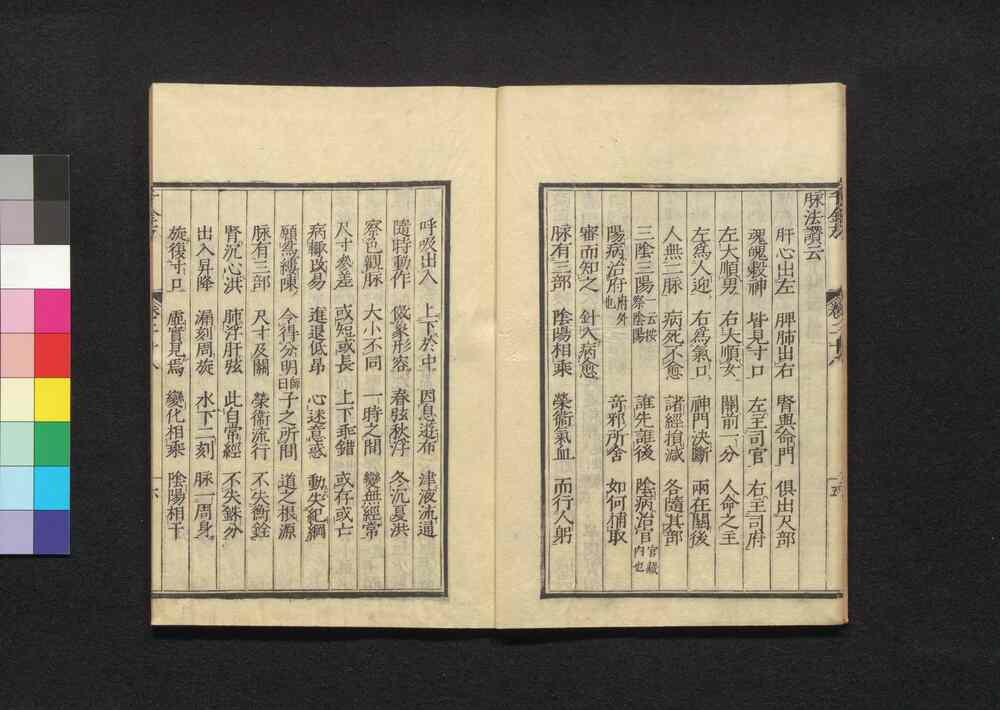 脉法讚云
肝心出左 脾肺出右 腎與命門 俱出尺部
魂魄穀神 皆見寸口 左主司官 右主司府
左大順男 右大順女 關前一分 人命之主
左為人迎 右為氣口 神門決斷 兩在關後
人無二脉 病死不愈 諸經損減 各隨其部
三陰三陽一云按察陰陽 誰先誰後 陰病治官官藏內也
陽病治府府外也 奇邪所舍 如何捕取
審而知之 針入病愈
脉有三部 陰陽相乘 榮衛氣血 而行人躬
千金方 卷二十八 十五
呼吸出入 上下於中 因息遊布 津液流通
隨時動作 傚象形容 春弦秋浮 冬沉夏洪
察色觀脉 大小不同 一時之間 變無經常
尺寸參差 或短或長 上下乖錯 或存或亡
病輒改易 進退低昂 心迷意惑 動失紀綱
願為縷陳 令得分明師曰 子之所問 道之根源
脉有三部 尺寸及關 榮衛流行 不失衡銓
腎沉心洪 肺浮肝弦 此自常經 不失銖分
出入昇降 漏刻周旋 水下二刻 脉一周身
旋復寸口 虛實見焉 變化相乘 陰陽相干